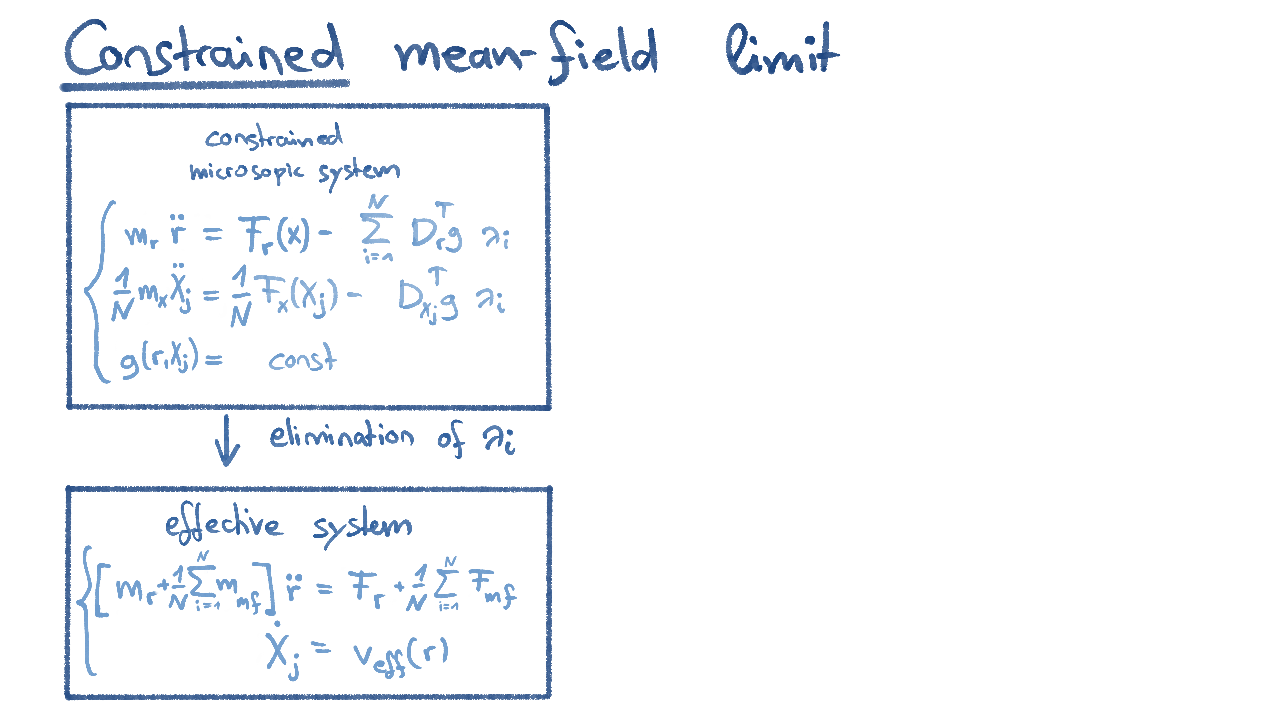 Constrained mean-field limit
constrained
microsopic system
m_r r̈ = F_r(x) - ∑_{i=1}^{N} D_r^T g λ_i
1/N m_x Ẍ_j = 1/N F_x(X_j) - D_{X_j}^T g λ_i
g(r, X_j) = const
↓ elimination of λ_i
effective system
[m_r + 1/N ∑_{i=1}^{N} m_{mf}] r̈ = F_r + 1/N ∑_{i=1}^{N} F_{mf}
Ẋ_j = v_{eff}(r)